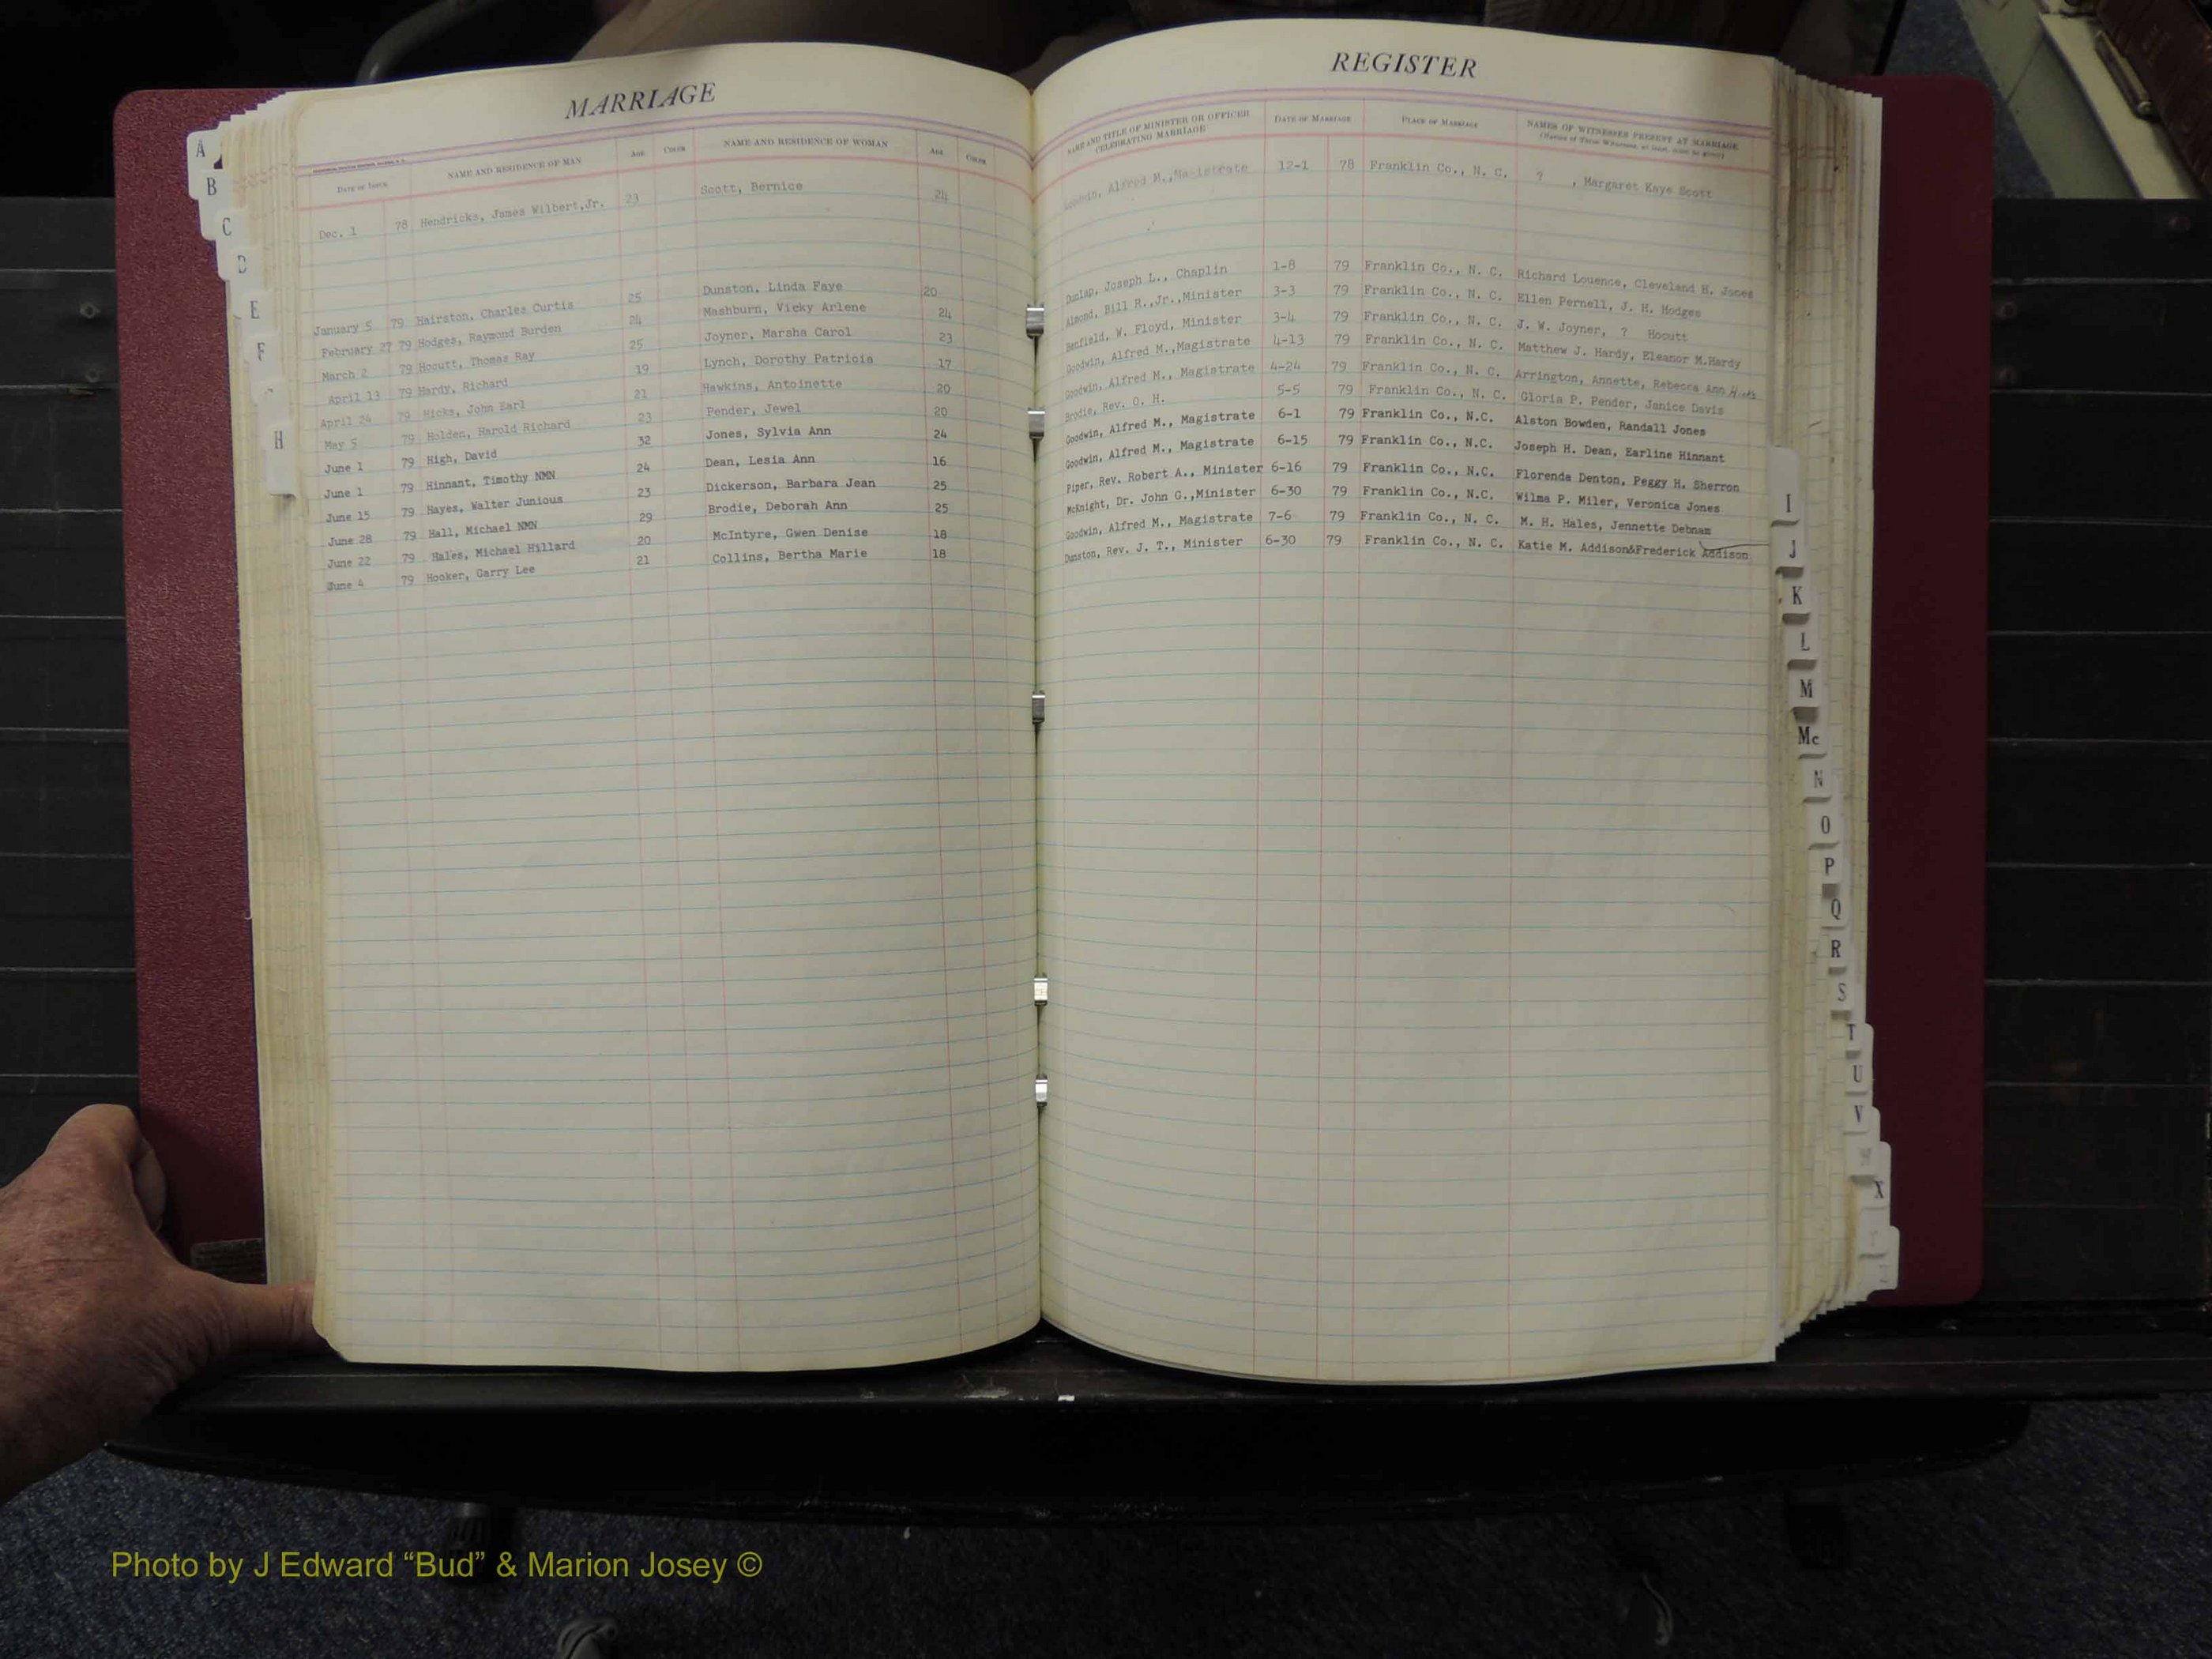 MARRIAGE
DATE OF ISSUE NAME AND RESIDENCE OF MAN AGE COLOR NAME AND RESIDENCE OF WOMAN AGE COLOR
Dec. 1 78 Hendricks, James Wilbert,Jr. 23 Scott, Bernice 24
January 5 79 Hairston, Charles Curtis 25 Dunston, Linda Faye 20
February 27 79 Hodges, Raymond Burden 24 Mashburn, Vicky Arlene 24
March 2 79 Hocutt, Thomas Ray 25 Joyner, Marsha Carol 23
April 13 79 Hardy, Richard 19 Lynch, Dorothy Patricia 17
April 24 79 Hicks, John Earl 21 Hawkins, Antoinette 20
May 5 79 Holden, Harold Richard 23 Pender, Jewel 20
June 1 79 High, David 32 Jones, Sylvia Ann 24
June 1 79 Hinnant, Timothy NMN 24 Dean, Lesia Ann 16
June 15 79 Hayes, Walter Junious 23 Dickerson, Barbara Jean 25
June 28 79 Hall, Michael NMN 29 Brodie, Deborah Ann 25
June 22 79 Hales, Michael Hillard 20 McIntyre, Gwen Denise 18
June 4 79 Hooker, Garry Lee 21 Collins, Bertha Marie 18
REGISTER
NAME AND TITLE OF MINISTER OR OFFICER CELEBRATING MARRIAGE DATE OF MARRIAGE PLACE OF MARRIAGE NAMES OF WITNESSES PRESENT AT MARRIAGE
(Names of Three Witnesses, at least, must be given)
Goodwin, Alfred M.,Magistrate 12-1 78 Franklin Co., N. C. ? , Margaret Kaye Scott
Dunlap, Joseph L., Chaplin 1-8 79 Franklin Co., N. C. Richard Louence, Cleveland H. Jones
Almond, Bill R.,Jr.,Minister 3-3 79 Franklin Co., N. C. Ellen Pernell, J. H. Hodges
Benfield, W. Floyd, Minister 3-4 79 Franklin Co., N. C. J. W. Joyner, ? Hocutt
Goodwin, Alfred M.,Magistrate 4-13 79 Franklin Co., N. C. Matthew J. Hardy, Eleanor M.Hardy
Goodwin, Alfred M., Magistrate 4-24 79 Franklin Co., N. C. Arrington, Annette, Rebecca Ann Hicks
Brodie, Rev. O. H. 5-5 79 Franklin Co., N. C. Gloria P. Pender, Janice Davis
Goodwin, Alfred M., Magistrate 6-1 79 Franklin Co., N.C. Alston Bowden, Randall Jones
Goodwin, Alfred M., Magistrate 6-15 79 Franklin Co., N.C. Joseph H. Dean, Earline Hinnant
Piper, Rev. Robert A., Minister 6-16 79 Franklin Co., N.C. Florenda Denton, Peggy H. Sherron
McKnight, Dr. John G.,Minister 6-30 79 Franklin Co., N.C. Wilma P. Miler, Veronica Jones
Goodwin, Alfred M., Magistrate 7-6 79 Franklin Co., N. C. M. H. Hales, Jennette Debnam
Dunston, Rev. J. T., Minister 6-30 79 Franklin Co., N. C. Katie M. Addison&Frederick Addison
A
B
C
D
E
F
H
I
J
K
L
M
Mc
N
O
P
Q
R
S
T
U
V
W
X
Photo by J Edward “Bud” & Marion Josey ©